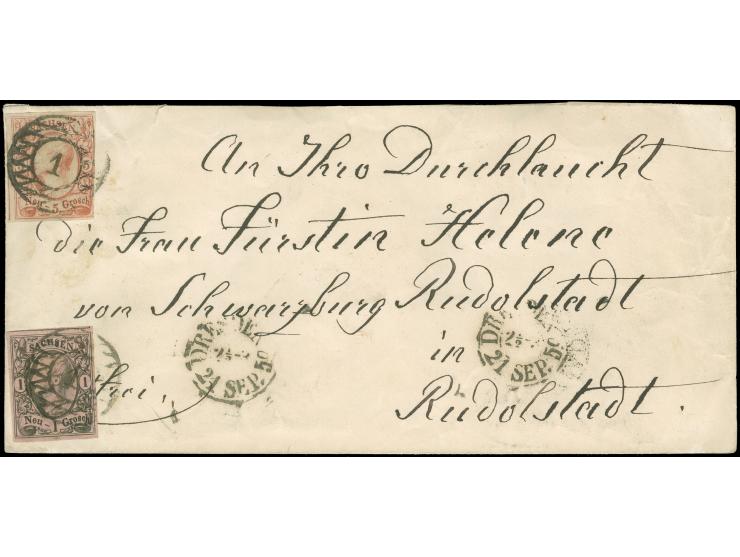 An Ihro Durchlaucht
die Frau Fürstin Helene
von Schwarzburg Rudolstadt
in
Rudolstadt.
frei,
SACHSEN
1
5
Neu- 5 Grosch
SACHSEN
1 1
Neu- 1 Grosch
DRESDEN
21 SEP. 59
DRESDEN
21 SEP. 59